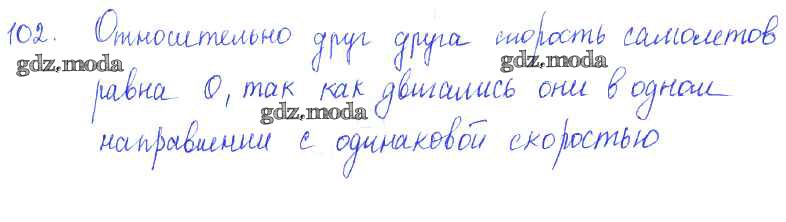 102. Относительно друг друга скорость самолетов
gdz.moda gdz.moda
равна 0, так как двигались они в одном
gdz.moda
направлении с одинаковой скоростью